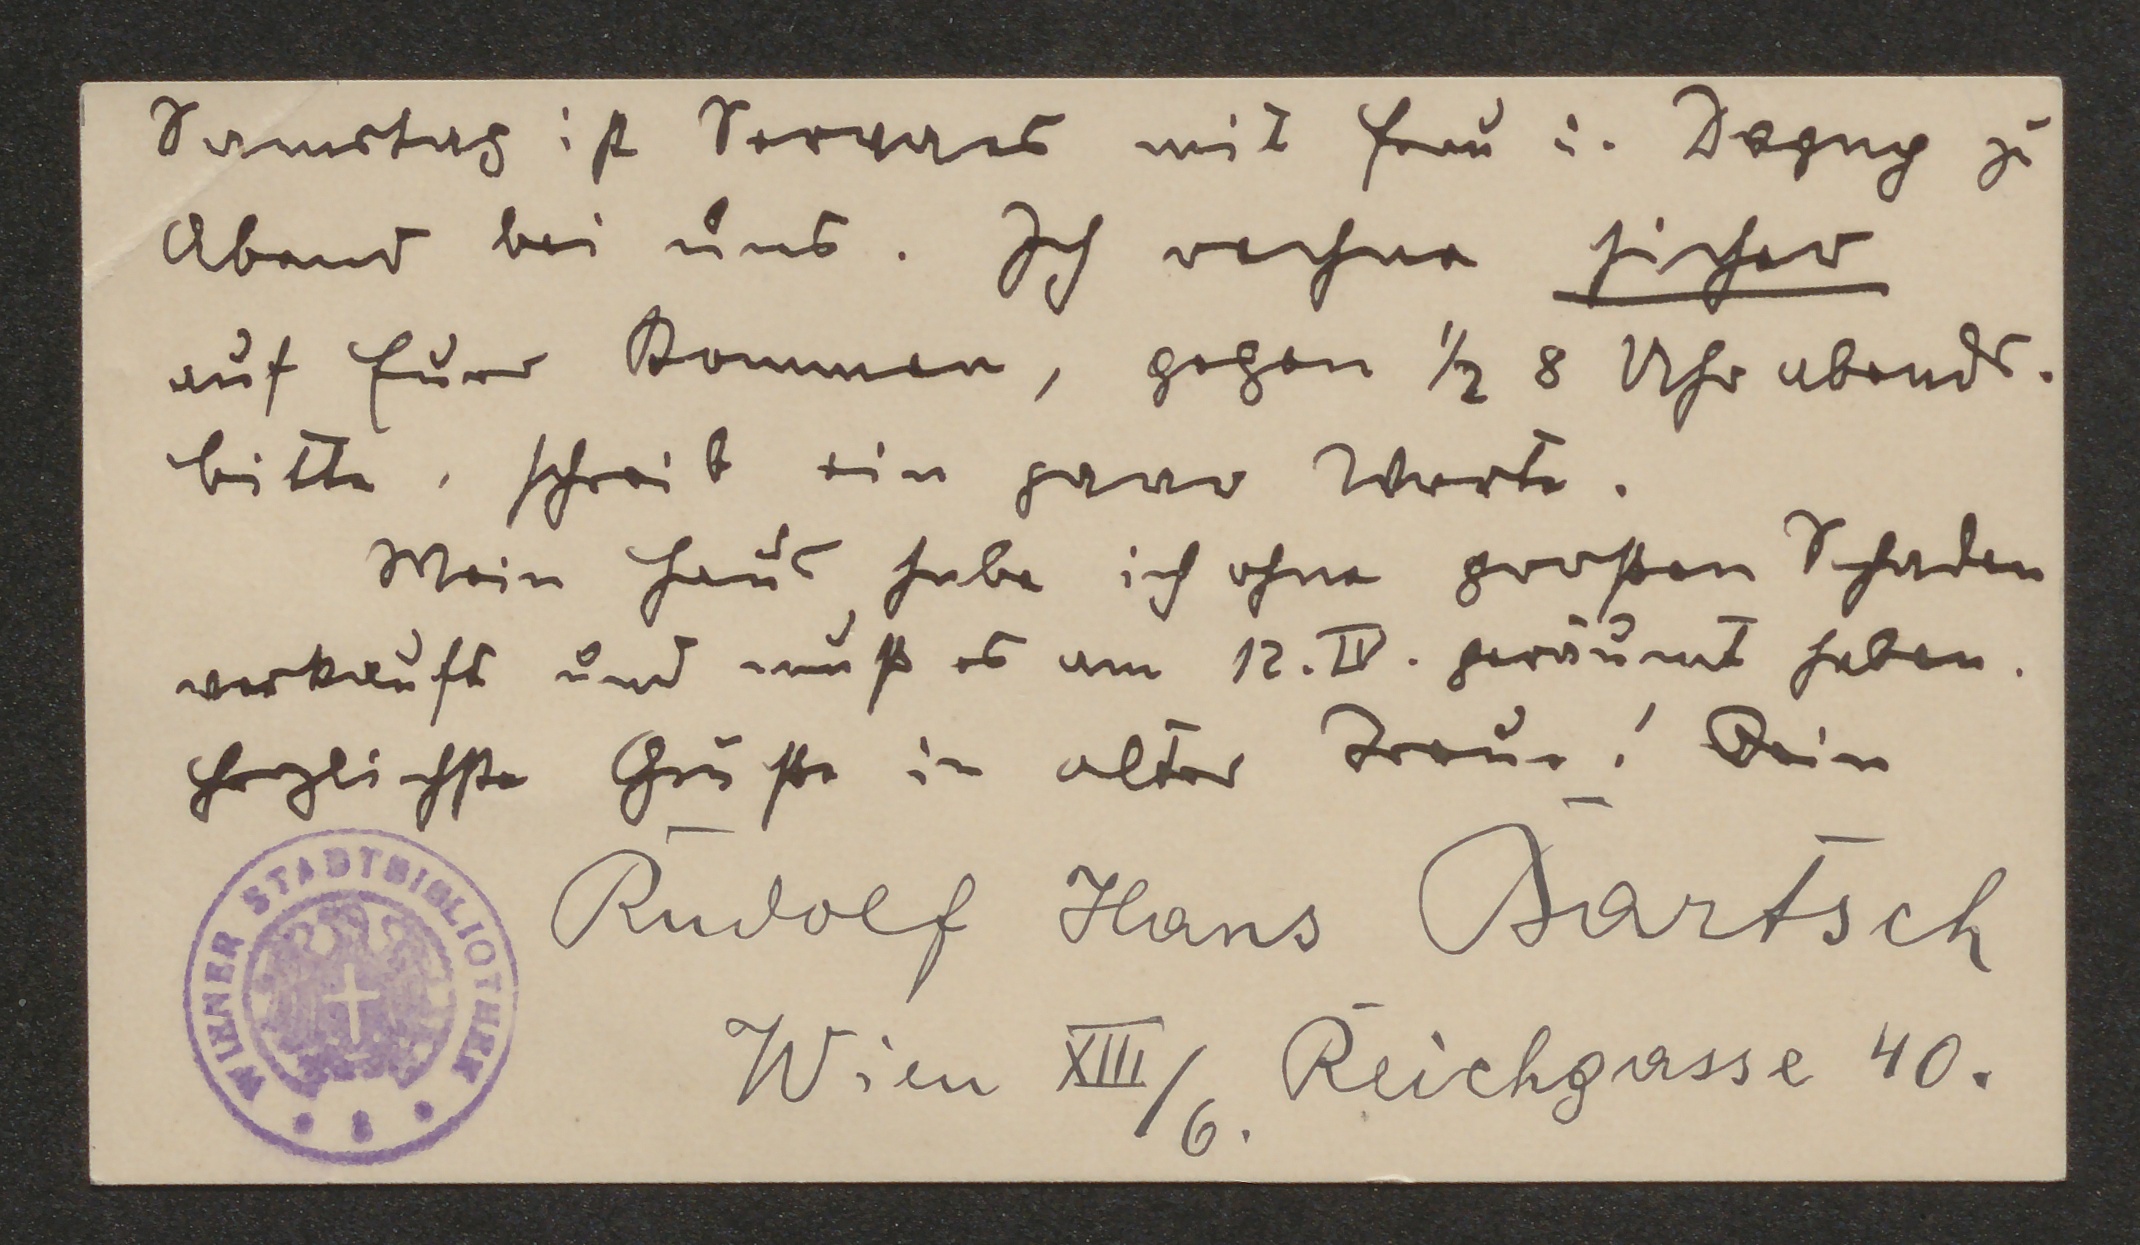 Samstag ist Servaes mit Frau u. Dagny zu
Abend bei uns. Ich rechne sicher
auf Euer Kommen, gegen ½ 8 Uhr abends.
bitte, schreib ein paar Worte.
Mein Haus habe ich ohne großen Schaden
verkauft und muß es am 12. IV. geräumt haben.
Herzlichste Grüße in alter Treue! Dein
Rudolf Hans Bartsch
Wien XIII/6. Reichgasse 40.
WIENER STADTBIBLIOTHEK
8